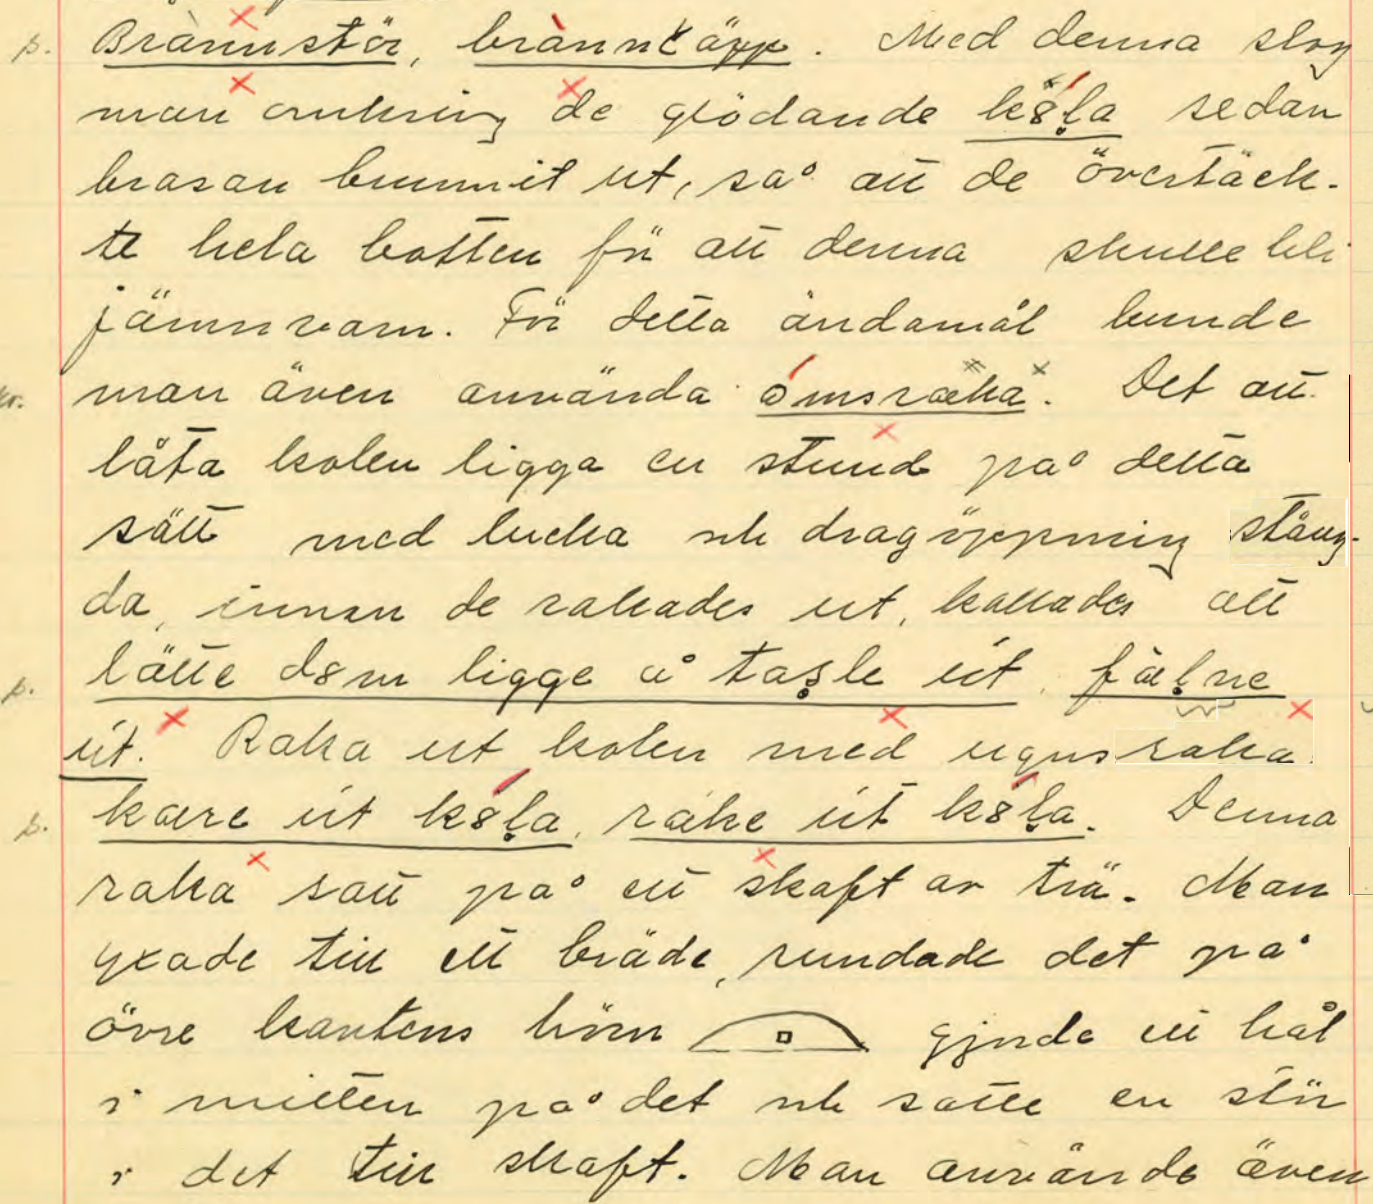 p. Brännstör, brännkäpp. Med denna slog
man omkring de glödande k8̋ḷa sedan
brasan brunnit ut, så att de övertäck-
te hela botten för att denna skulle bli
jämnvarm. För detta ändamål kunde
man även använda ómsræka. Det att
låta kolen ligga en stund på detta
sätt med lucka och dragöppning stäng-
da, innan de rakades ut, kallades att
p. lätte d8m ligge å tasle út, fæḷne
út. Raka ut kolen med ugnsraka
p. kære út k8ḷa, rake út k8ḷa. Denna
raka satt på ett skaft av trä. Man
yxade till ett bräde, rundade det på
övre kantens hörn gjorde ett hål
i mitten på det och satte en stör
i det till skaft. Man använde även